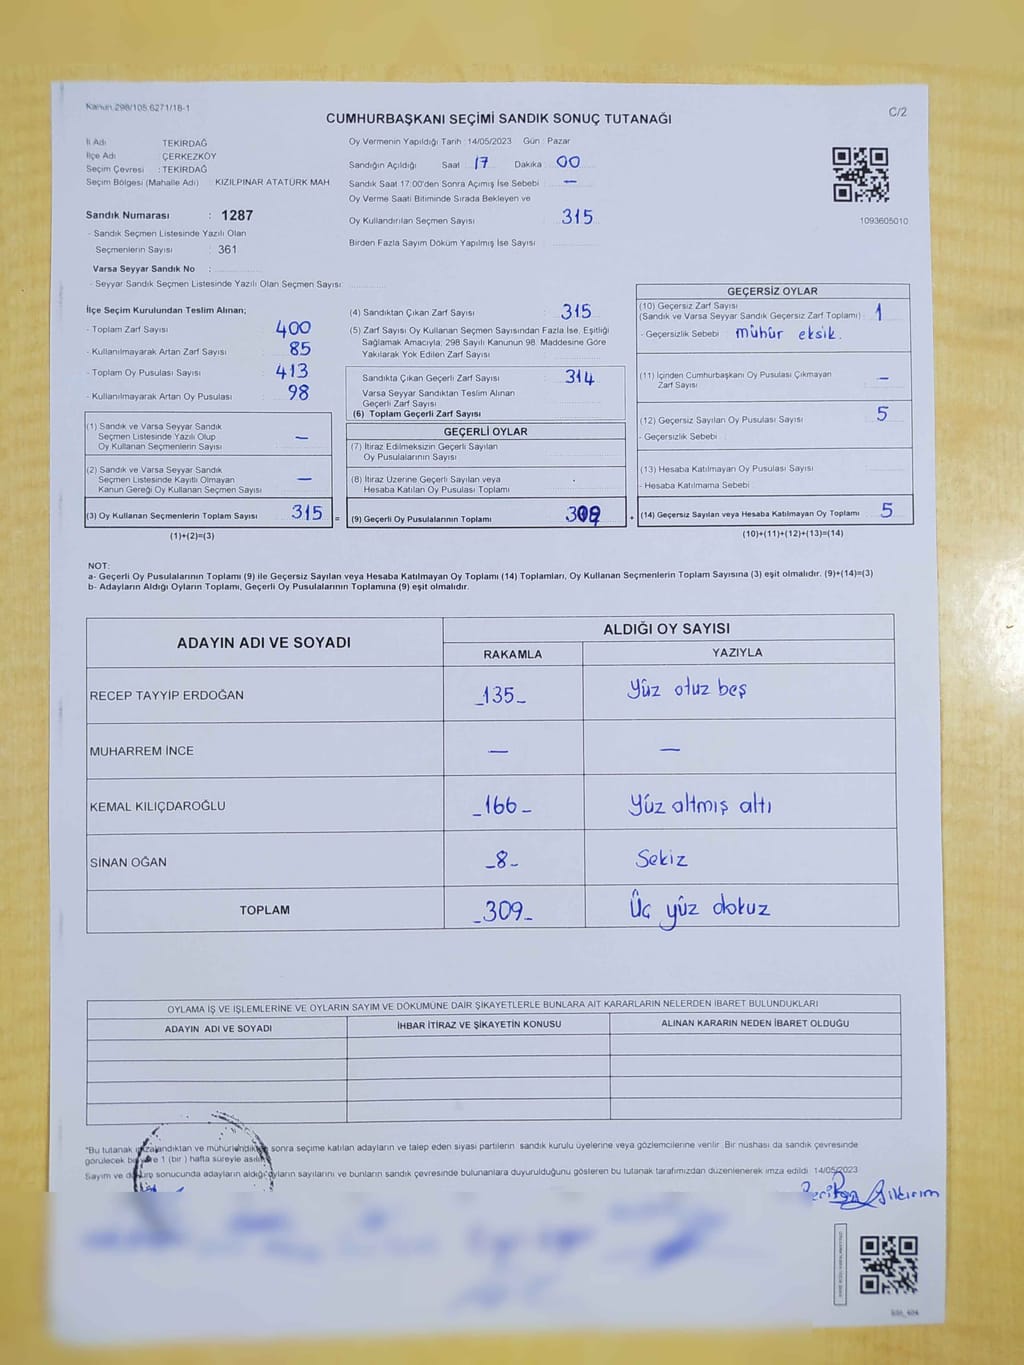 Kanun 298/105 6271/18-1
C/2
CUMHURBAŞKANI SEÇİMİ SANDIK SONUÇ TUTANAĞI
İl Adı TEKİRDAĞ
İlçe Adı ÇERKEZKÖY
Seçim Çevresi : TEKİRDAĞ
Seçim Bölgesi (Mahalle Adı) : KIZILPINAR ATATÜRK MAH.
Sandık Numarası : 1287
- Sandık Seçmen Listesinde Yazılı Olan
Seçmenlerin Sayısı : 361
Varsa Seyyar Sandık No :
- Seyyar Sandık Seçmen Listesinde Yazılı Olan Seçmen Sayısı:
Oy Vermenin Yapıldığı Tarih : 14/05/2023 Gün : Pazar
Sandığın Açıldığı Saat 17 Dakika 00
Sandık Saat 17:00'den Sonra Açımış İse Sebebi —
Oy Verme Saati Bitiminde Sırada Bekleyen ve
Oy Kullandırılan Seçmen Sayısı 315
Birden Fazla Sayım Döküm Yapılmış İse Sayısı
1093605010
İlçe Seçim Kurulundan Teslim Alınan;
- Toplam Zarf Sayısı 400
- Kullanılmayarak Artan Zarf Sayısı 85
- Toplam Oy Pusulası Sayısı 413
- Kullanılmayarak Artan Oy Pusulası 98
(1) Sandık ve Varsa Seyyar Sandık
Seçmen Listesinde Yazılı Olup
Oy Kullanan Seçmenlerin Sayısı —
(2) Sandık ve Varsa Seyyar Sandık
Seçmen Listesinde Kayıtlı Olmayan
Kanun Gereği Oy Kullanan Seçmen Sayısı —
(3) Oy Kullanan Seçmenlerin Toplam Sayısı 315 =
(1)+(2)=(3)
(4) Sandıktan Çıkan Zarf Sayısı 315
(5) Zarf Sayısı Oy Kullanan Seçmen Sayısından Fazla İse, Eşitliği
Sağlamak Amacıyla; 298 Sayılı Kanunun 98. Maddesine Göre
Yakılarak Yok Edilen Zarf Sayısı
Sandıkta Çıkan Geçerli Zarf Sayısı 314
Varsa Seyyar Sandıktan Teslim Alınan
Geçerli Zarf Sayısı
(6) Toplam Geçerli Zarf Sayısı
GEÇERLİ OYLAR
(7) İtiraz Edilmeksizin Geçerli Sayılan
Oy Pusulalarının Sayısı
(8) İtiraz Üzerine Geçerli Sayılan veya
Hesaba Katılan Oy Pusulası Toplamı
(9) Geçerli Oy Pusulalarının Toplamı 309 +
GEÇERSİZ OYLAR
(10) Geçersiz Zarf Sayısı
(Sandık ve Varsa Seyyar Sandık Geçersiz Zarf Toplamı) : 1
- Geçersizlik Sebebi : mühür eksik.
(11) İçinden Cumhurbaşkanı Oy Pusulası Çıkmayan
Zarf Sayısı —
(12) Geçersiz Sayılan Oy Pusulası Sayısı 5
- Geçersizlik Sebebi :
(13) Hesaba Katılmayan Oy Pusulası Sayısı
- Hesaba Katılmama Sebebi :
(14) Geçersiz Sayılan veya Hesaba Katılmayan Oy Toplamı 5
(10)+(11)+(12)+(13)=(14)
NOT:
a- Geçerli Oy Pusulalarının Toplamı (9) ile Geçersiz Sayılan veya Hesaba Katılmayan Oy Toplamı (14) Toplamları, Oy Kullanan Seçmenlerin Toplam Sayısına (3) eşit olmalıdır. (9)+(14)=(3)
b- Adayların Aldığı Oyların Toplamı, Geçerli Oy Pusulalarının Toplamına (9) eşit olmalıdır.
ADAYIN ADI VE SOYADI ALDIĞI OY SAYISI
RAKAMLA YAZIYLA
RECEP TAYYİP ERDOĞAN -135- Yüz otuz beş
MUHARREM İNCE — —
KEMAL KILIÇDAROĞLU -166- Yüz altmış altı
SİNAN OĞAN -8- Sekiz
TOPLAM -309- Üç yüz dokuz
OYLAMA İŞ VE İŞLEMLERİNE VE OYLARIN SAYIM VE DÖKÜMÜNE DAİR ŞİKAYETLERLE BUNLARA AİT KARARLARIN NELERDEN İBARET BULUNDUKLARI
ADAYIN ADI VE SOYADI İHBAR İTİRAZ VE ŞİKAYETİN KONUSU ALINAN KARARIN NEDEN İBARET OLDUĞU
"Bu tutanak imzalandıktan ve mühürlendikten sonra seçime katılan adayların ve talep eden siyasi partilerin sandık kurulu üyelerine veya gözlemcilerine verilir. Bir nüshası da sandık çevresinde
görülecek bir yere 1 (bir ) hafta süreyle asılır.
Sayım ve döküm sonucunda adayların aldığı oyların sayılarını ve bunların sandık çevresinde bulunanlara duyurulduğunu gösteren bu tutanak tarafımızdan düzenlenerek imza edildi 14/05/2023
Yıldırım